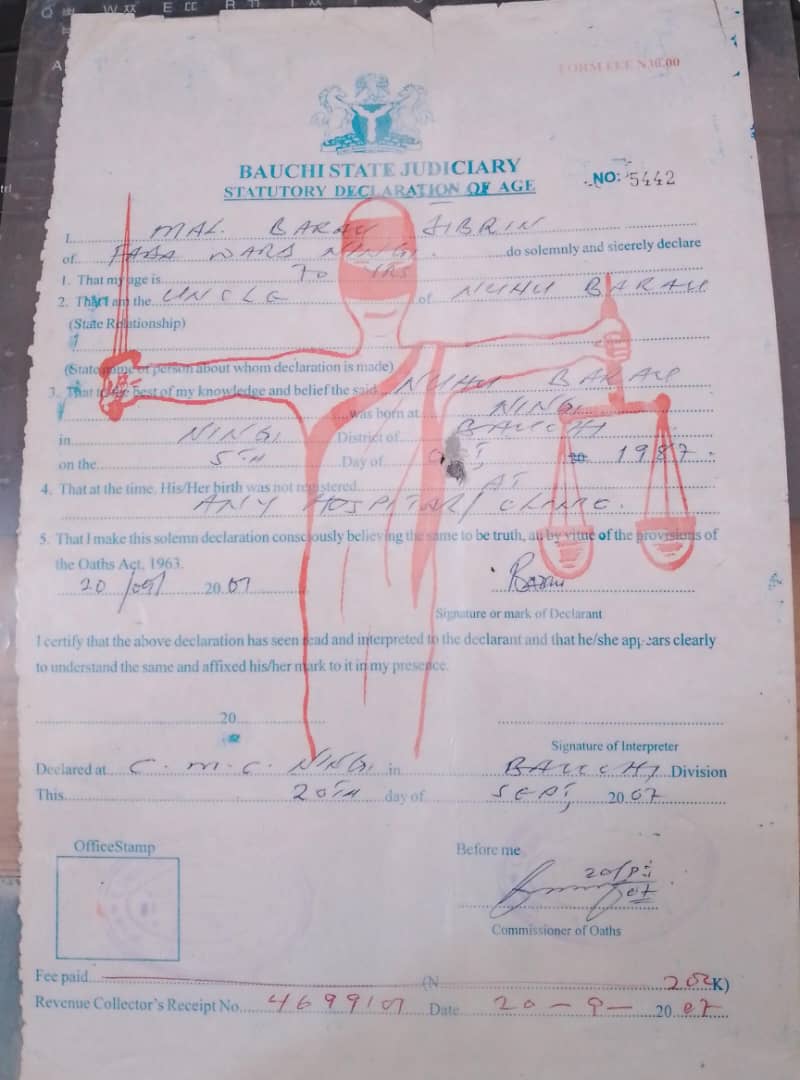 FORM FEE N30.00
BAUCHI STATE JUDICIARY
STATUTORY DECLARATION OF AGE
NO: 5442
I. MAL. BARAU JIBRIN
of FADA WARD NINGI. do solemnly and sicerely declare
1. That my age is 70 YRS
2. That I am the UNCLE of NUHU BARAU
(State Relationship)
(State name of person about whom declaration is made)
3. That to the best of my knowledge and belief the said NUHU BARAU
was born at NINGI
in NINGI District of BAUCHI
on the 5TH Day of 1987.
4. That at the time. His/Her birth was not registered AT
ANY HOSPITAL/ CLINIC.
5. That I make this solemn declaration consciously believing the same to be truth, an by vitue of the provisions of
the Oaths Act, 1963.
20/09/ 20 07
Signature or mark of Declarant
I certify that the above declaration has seen read and interpreted to the declarant and that he/she appears clearly
to understand the same and affixed his/her mark to it in my presence.
20
Signature of Interpreter
Declared at C. M. C. NINGI in BAUCHI Division
This 20TH day of SEPT, 20 07
OfficeStamp
Before me
Commissioner of Oaths
Fee paid (N 20 K)
Revenue Collector's Receipt No. 4699107 Date 20 - 9 - 20 07